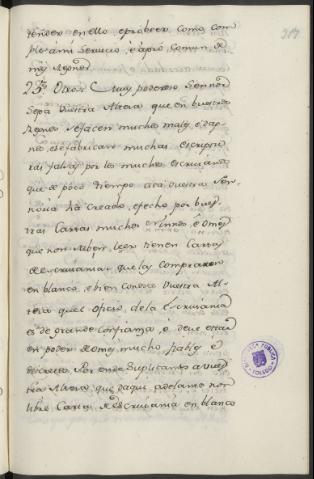 tender en ello e proveer como com
ple a mi servicio e a pro comun de
mis Regnos
25.ª Otrosi Muy poderoso Sennor
Sepa vuestra Alteza que en vuestros
Regnos se facen muchos males e dap
nos e se fabrican muchas escriptu
ras falsas por los muchos escrivanos
que de poco tiempo aca vuestra Sen
noria ha creado, e fecho por vues
tras Cartas muchos ninnos e omes
que non saben leer tienen Cartas
de escrivanias que las compraron
en blanco, e bien conoce vuestra Al
teza quel oficio de la Escrivania
es de grande confianza, e deve estar
en poder de omes mucho fiables e
discretos. Por ende Suplicamos a vues
tra Alteza que daqui adelante non
libre Cartas de escrivania en blanco
BIBLIOTECA PUBLICA
TOLEDO